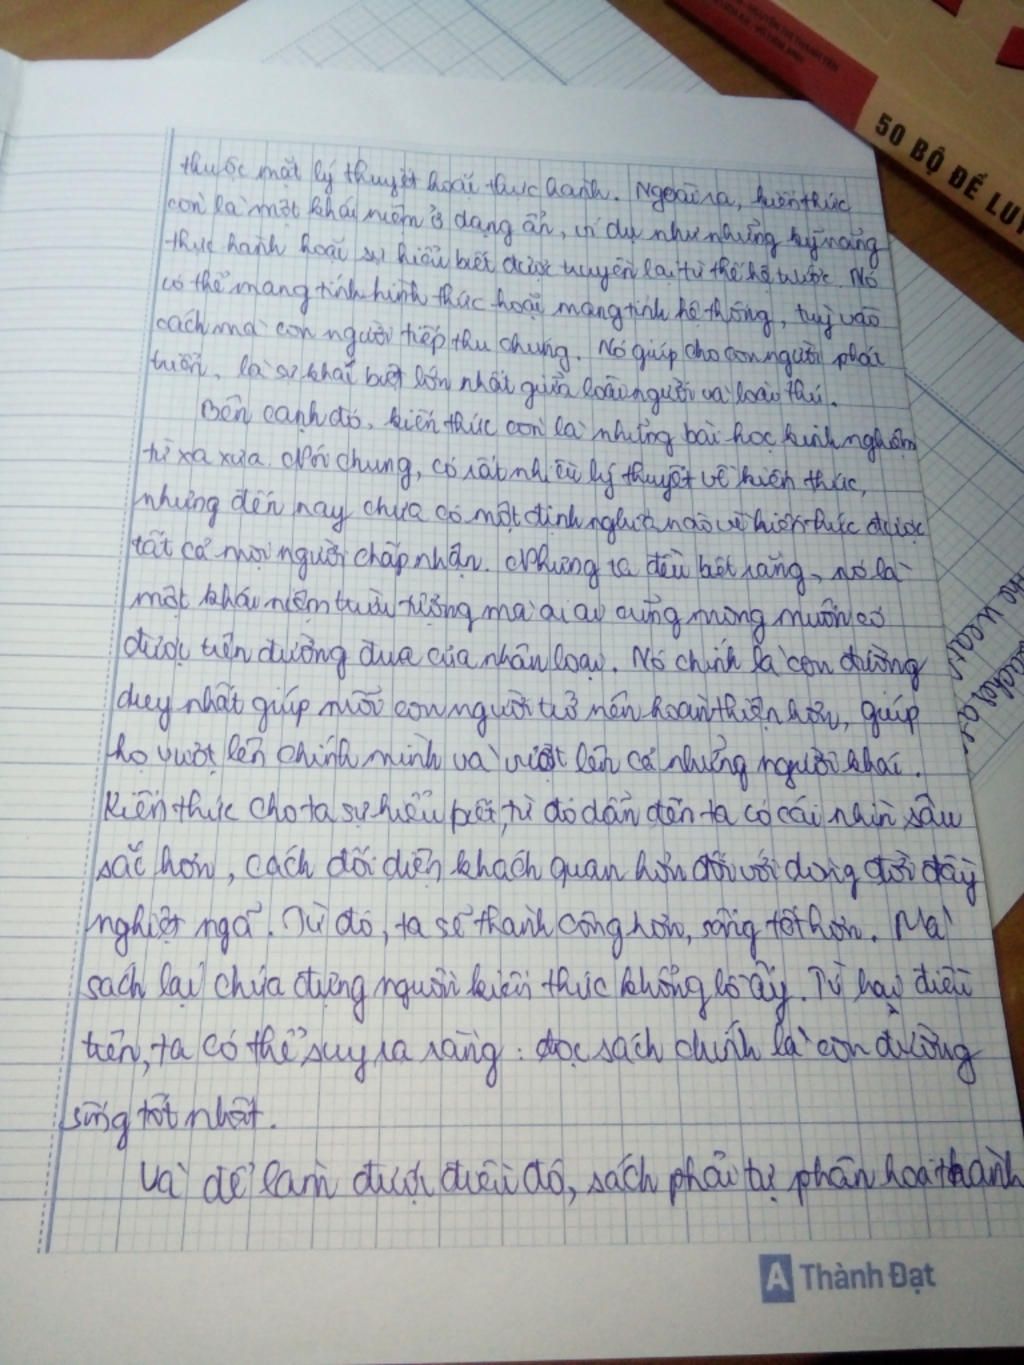 50 BỘ ĐỀ LU
thuộc mặt lý thuyết hoặc thực hành. Ngoài ra, kiến thức
còn là một khái niệm ở dạng ẩn, ví dụ như những kỹ năng
thực hành hoặc sự hiểu biết được truyền lại từ thế hệ trước. Nó
có thể mang tính hình thức hoặc mang tính hệ thống, tuỳ vào
cách mà con người tiếp thu chúng. Nó giúp cho con người phát
triển, là sự khác biệt lớn nhất giữa loài người và loài thú.
Bên cạnh đó, kiến thức còn là những bài học kinh nghiệm
từ xa xưa. Nói chung, có rất nhiều lý thuyết về kiến thức,
nhưng đến nay chưa có một định nghĩa nào về kiến thức được
tất cả mọi người chấp nhận. Nhưng ta đều biết rằng, nó là
một khái niệm trừu tượng mà ai ai cũng mong muốn có
được trên đường đua của nhân loại. Nó chính là con đường
duy nhất giúp mỗi con người trở nên hoàn thiện hơn, giúp
họ vượt lên chính mình và vượt lên cả những người khác.
Kiến thức cho ta sự hiểu biết, từ đó dẫn đến ta có cái nhìn sâu
sắc hơn, cách đối diện khách quan hơn đối với dòng đời đầy
nghiệt ngã. Từ đó, ta sẽ thành công hơn, sống tốt hơn. Mà
sách lại chứa đựng nguồn kiến thức khổng lồ ấy. Từ hai điều
trên, ta có thể suy ra rằng: đọc sách chính là con đường
sống tốt nhất.
Và để làm được điều đó, sách phải tự phân hoá thành
A Thành Đạt